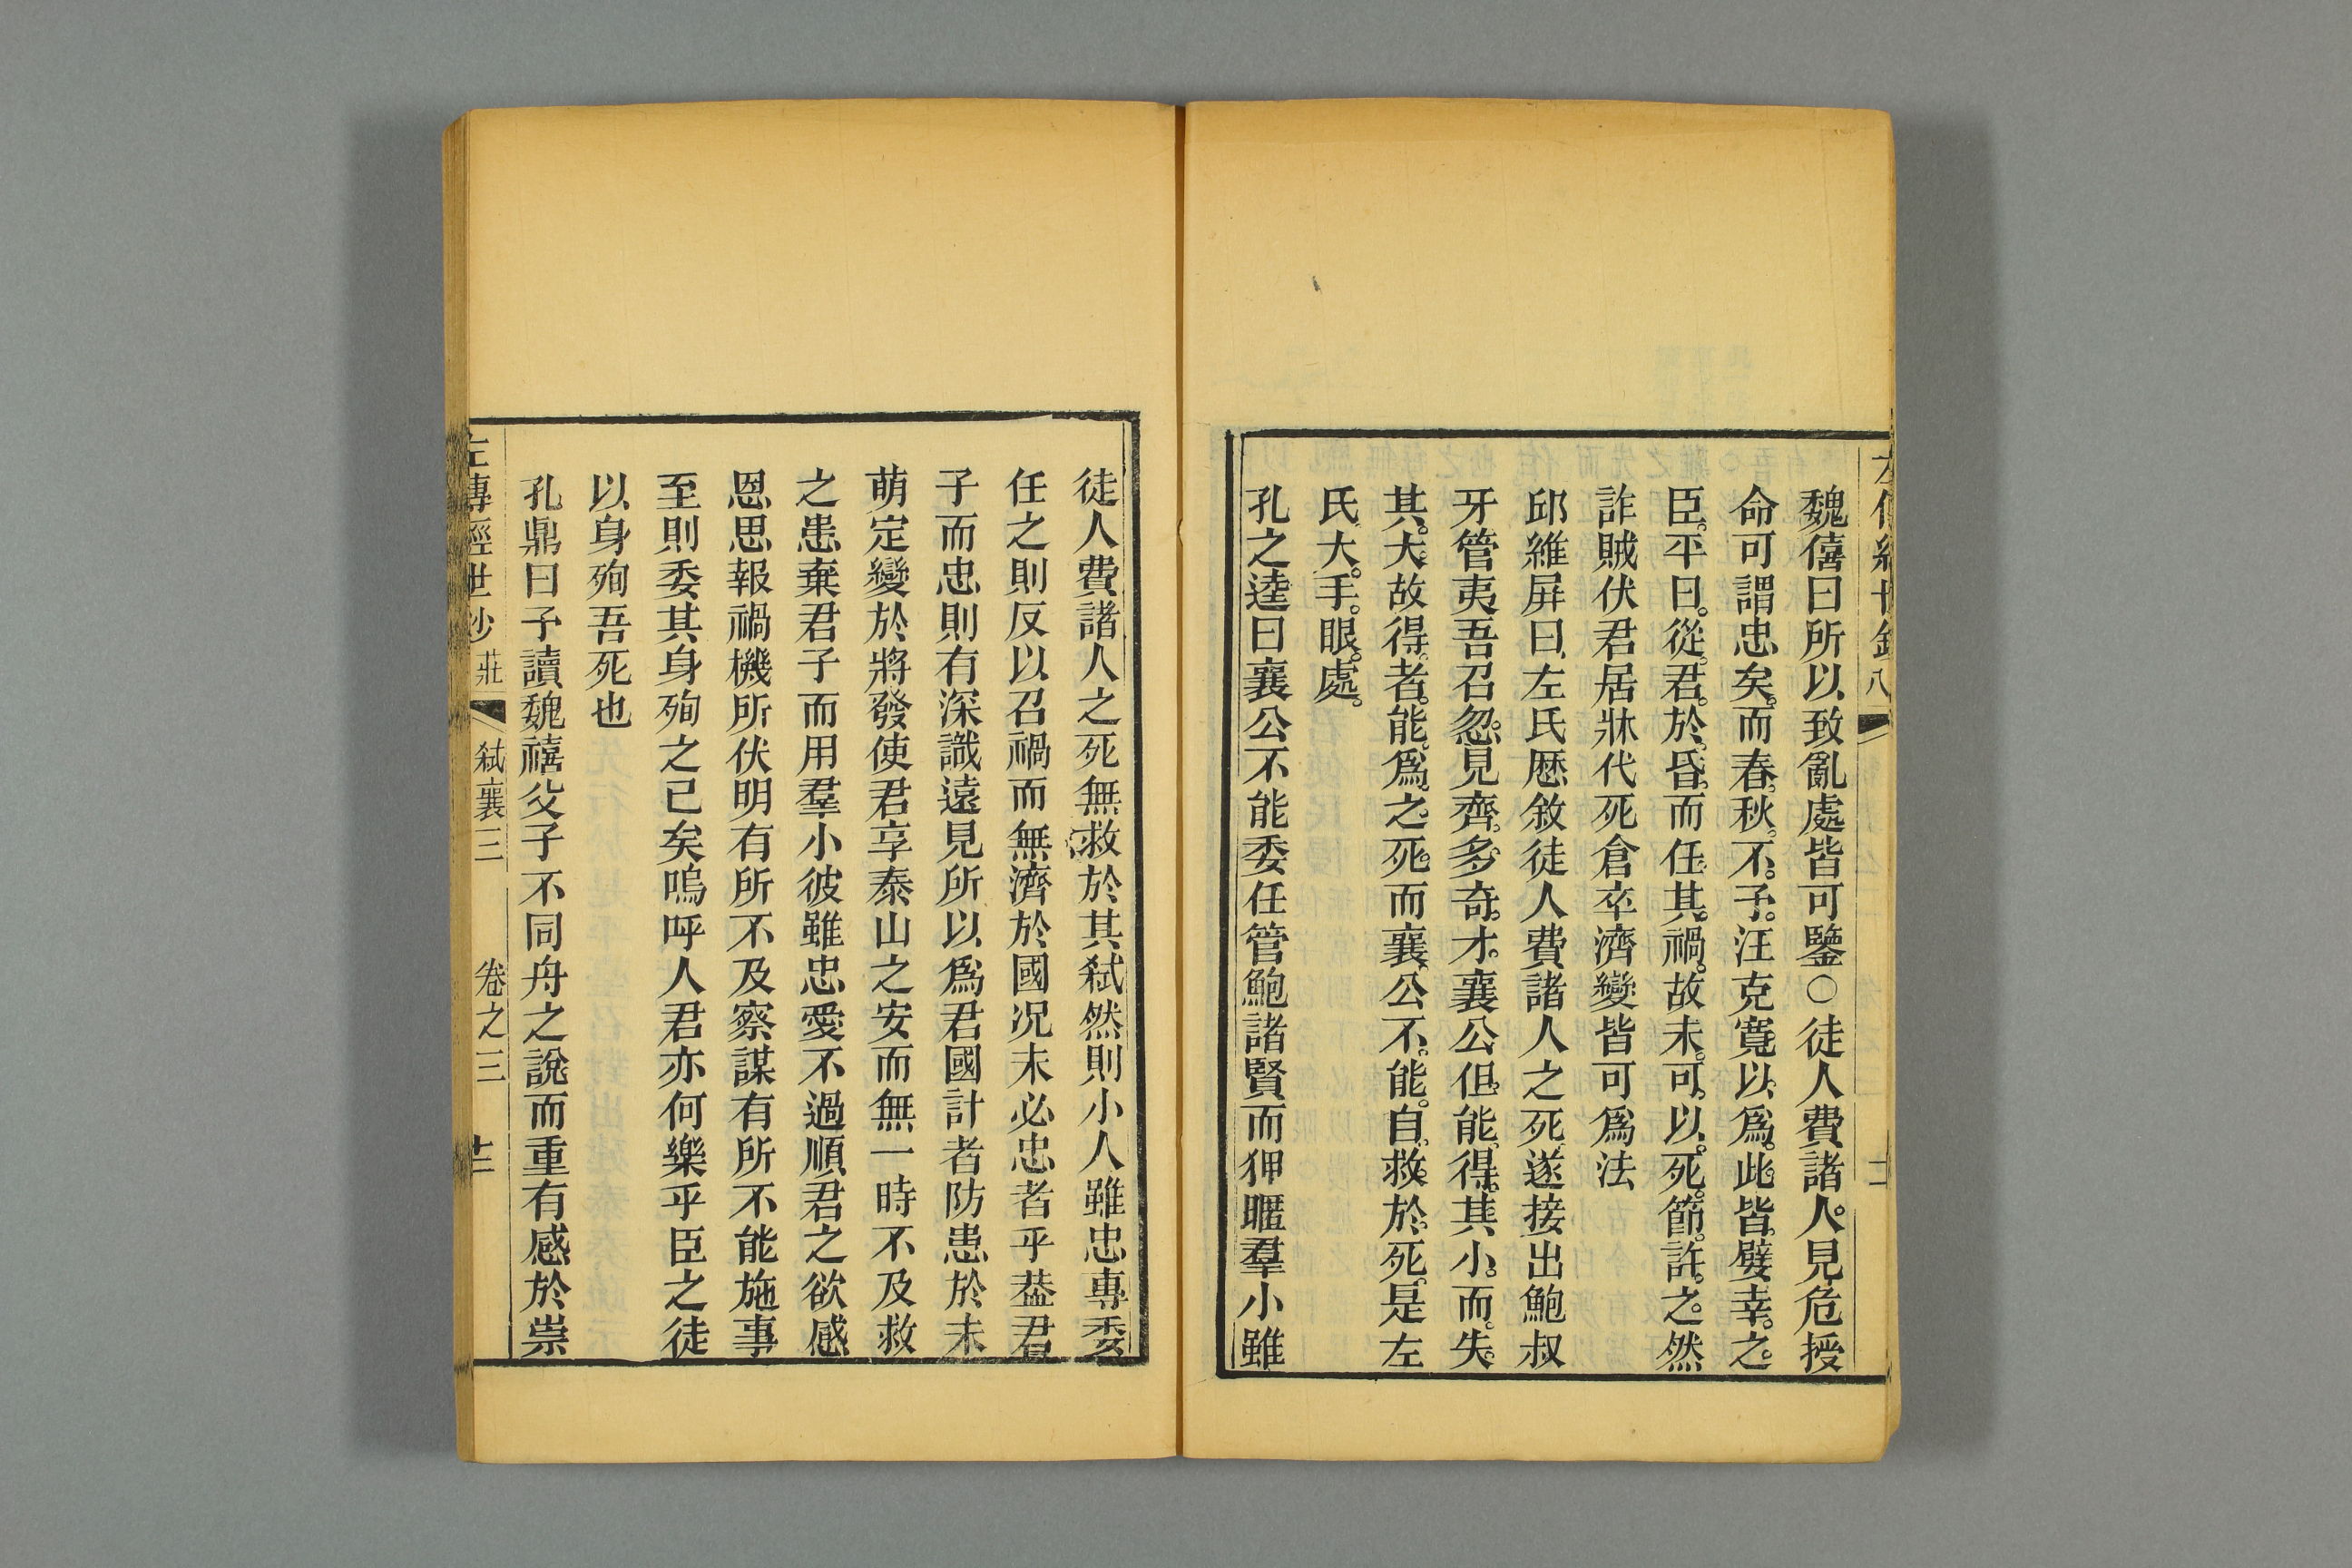 魏僖曰所以致亂處皆可鑒○徒人費諸人。見危授
命可謂忠矣。而春。秋。不。予。汪克寬以。爲。此。皆。嬖。幸。之。
臣。平日。從。君。於。昏。而任。其。禍。故未。可。以。死。節。許。之。然
詐賊伏君居牀代死倉卒濟變皆可爲法
邱維屏曰左氏歷敘徒人費諸人之死遂接出鮑叔
牙管夷吾召忽。見齊。多。奇。才。襄公但。能。得。其。小。而。失。
其。大。故得。者。能。爲。之。死。而襄。公不。能。自。救。於。死。是左
氏大。手。眼。處。
孔之逵曰襄公不能委任管鮑諸賢而狎暱羣小雖
徒人費諸人之死無救於其弑然則小人雖忠專委
任之則反以召禍而無濟於國况未必忠者乎葢君
子而忠則有深識遠見所以爲君國計者防患於未
萌定變於將發使君享泰山之安而無一時不及救
之患棄君子而用羣小彼雖忠愛不過順君之欲感
恩思報禍機所伏明有所不及察謀有所不能施事
至則委其身殉之已矣嗚呼人君亦何樂乎臣之徒
以身殉吾死也
孔鼎曰予讀魏禧父子不同舟之說而重有感於崇
左傳經世鈔 莊 弑襄三 卷之三 十二